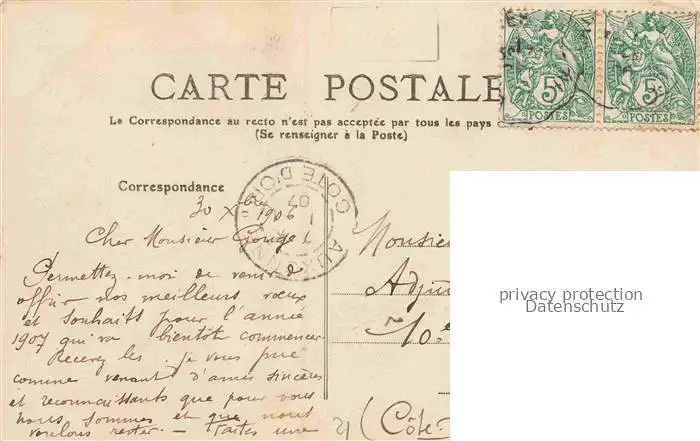 CARTE POSTALE
La Correspondance au recto n'est pas acceptée par tous les pays
(Se renseigner à la Poste)
5
POSTES
5
POSTES
Correspondance
30 Xbre 1906
Cher Monsieur
Permettez-moi de venir
offrir nos meilleurs vœux
et souhaits pour l'année
1907 qui va bientôt commencer.
Recevez les. je vous prie
comme venant d'amis sincères
et reconnaissants que pour vous
nous sommes et que nous
voulons rester. — Faites une
AUXONNE
COTE D'OR
07
Monsie
Adju
10e
(Côte-
privacy protection
Datenschutz